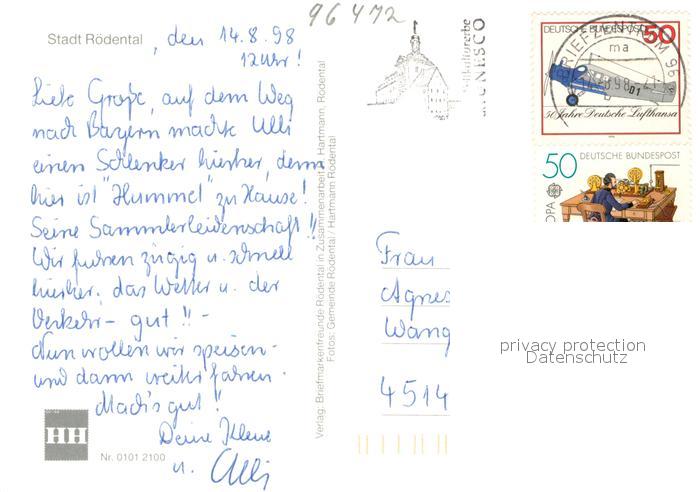 96472
Stadt Rödental, den 14.8.98
12 Uhr!
Liebe Große, auf dem Weg
nach Bayern machte Ulli
einen Schlenker hierher, denn
hier ist "Hummel" zu Hause!
Seine Sammlerleidenschaft!!
Wir fuhren zügig u. schnell
hierher, das Wetter u. der
Verkehr - gut!! -
Nun wollen wir speisen -
und dann weiterfahren.
Mach's gut!!
Deine Kleine
u. Ulli
HH
Nr. 0101 2100
Verlag: Briefmarkenfreunde Rödental in Zusammenarbeit Hartmann, Rödental
Fotos: Gemeinde Rödental / Hartmann Rödental
UNESCO
BRIEFZENTRUM 96
ma
DEUTSCHE BUNDESPOST 50
50 Jahre Deutsche Lufthansa
50 DEUTSCHE BUNDESPOST
OPA
Frau
Agnes
Wang
4514
privacy protection
Datenschutz